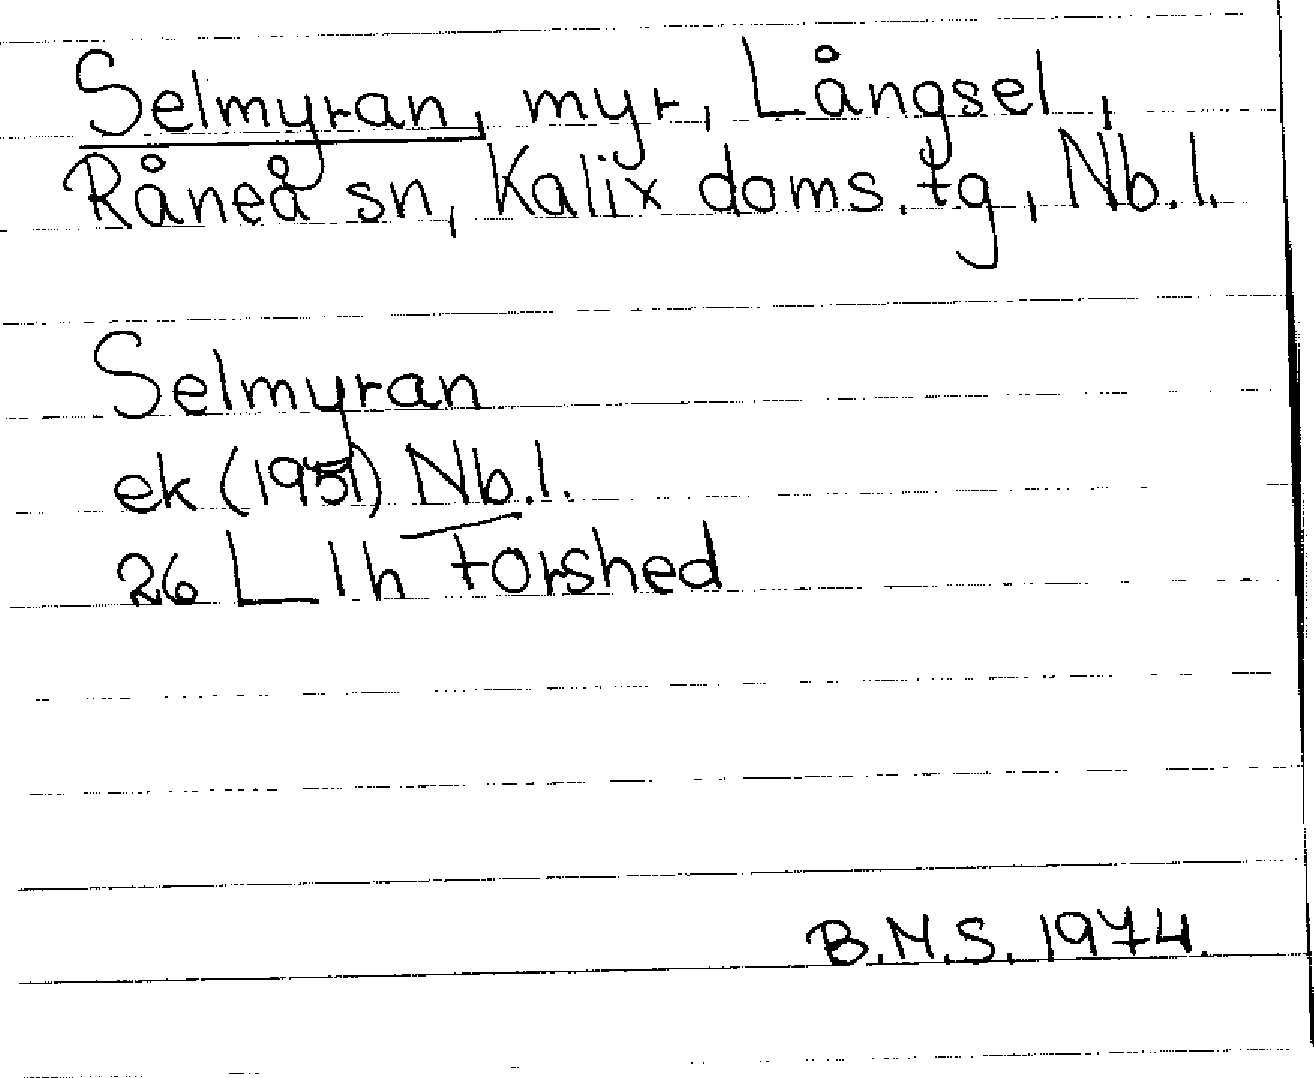 Selmyran, myr, Långsel,
Råneå sn, Kalix doms.tg, Nb.l.
Selmyran
ek (1951) Nb.l.
26 L 1h Forshed
B.N.S. 1974.